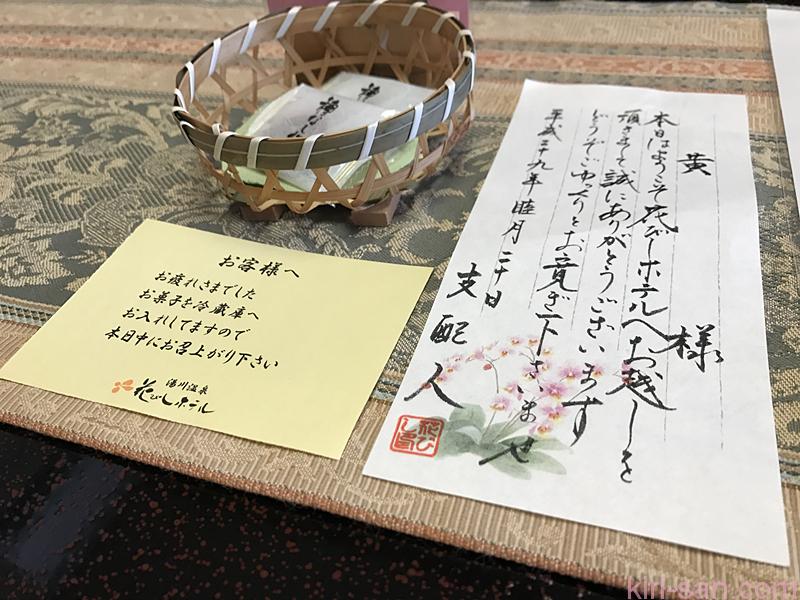 お客様へ
お疲れさまでした
お菓子を冷蔵庫へ
お入れしてますので
本日中にお召上がり下さい
湯川温泉
花びしホテル
黄 様
本日はようこそ花びしホテルへお越しを
頂きまして誠にありがとうございます
どうぞごゆっくりとお寛ぎ下さいませ
平成二十九年 睦月 二十日
支配人
kiri-san.com